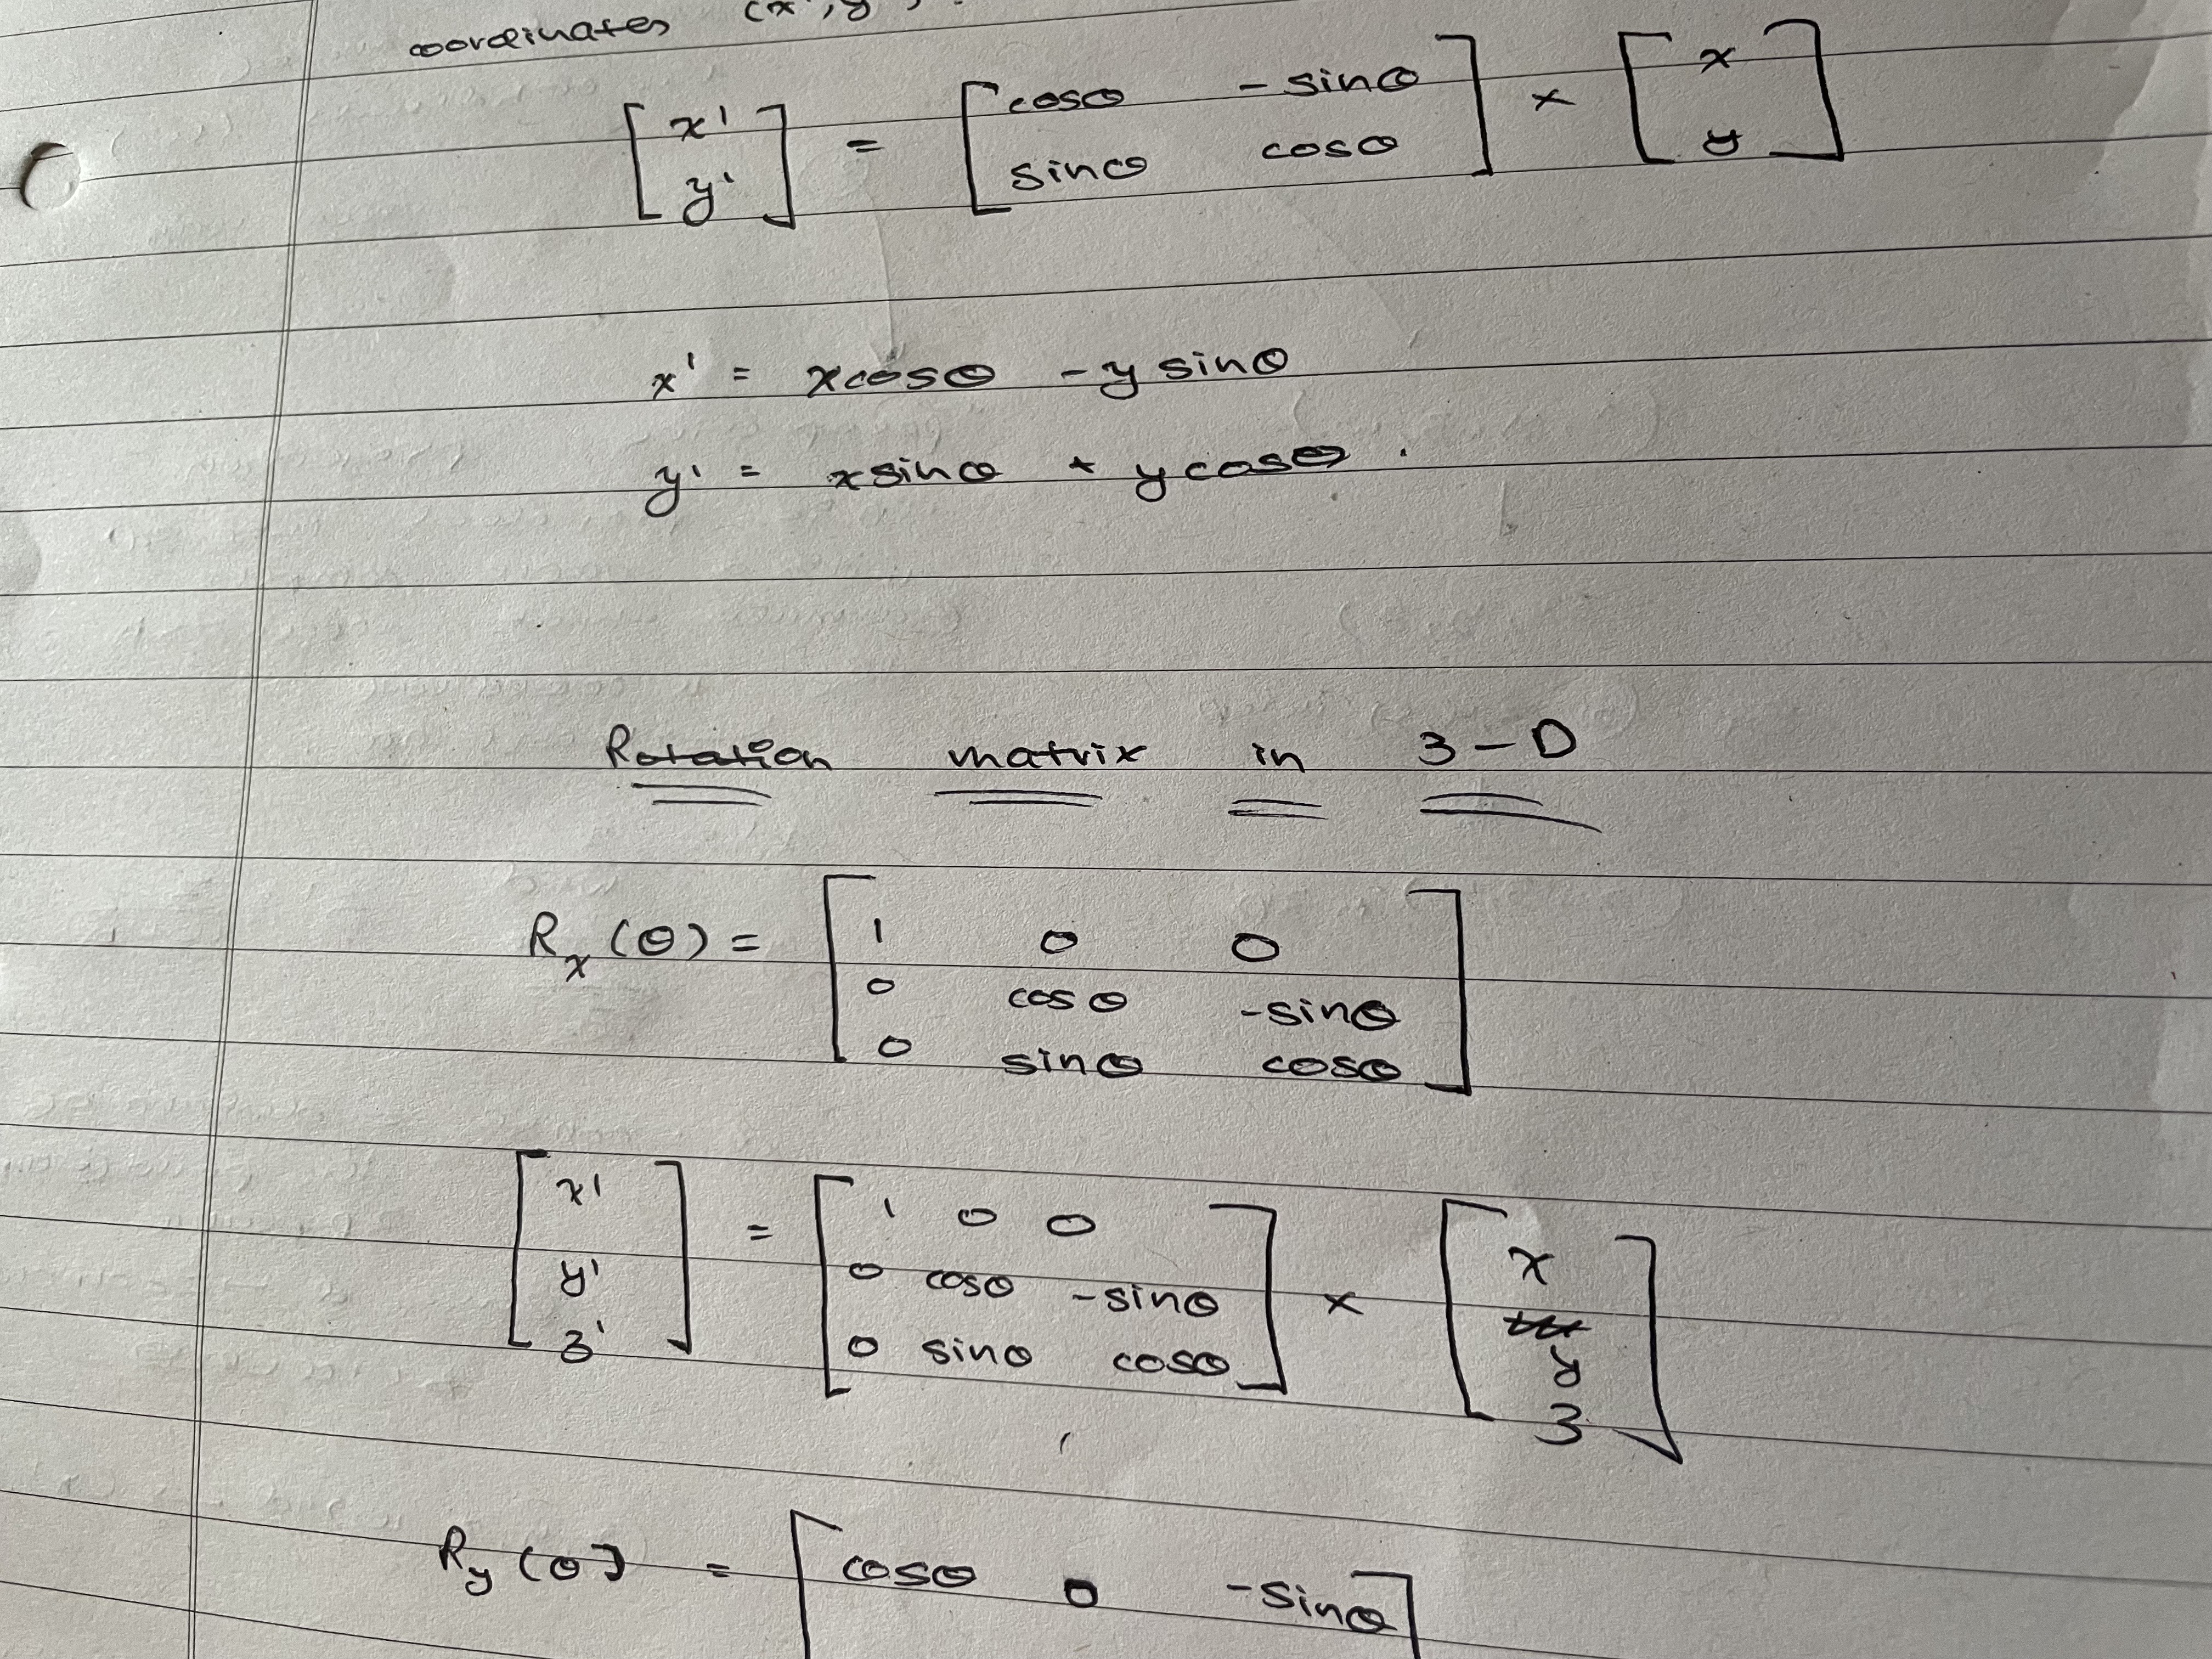 coordinates (x', y'
[x'] = [cosθ -sinθ] × [x]
[y'] [sinθ cosθ] [y]
x' = xcosθ - y sinθ
y' = xsinθ + y cosθ .
Rotation matrix in 3-D
R_x (θ) = [1 0 0]
[0 cosθ -sinθ]
[0 sinθ cosθ]
[x'] = [1 0 0] × [x]
[y'] [0 cosθ -sinθ] [y]
[z'] [0 sinθ cosθ] [z]
R_y (θ) = [cosθ 0 -sinθ]